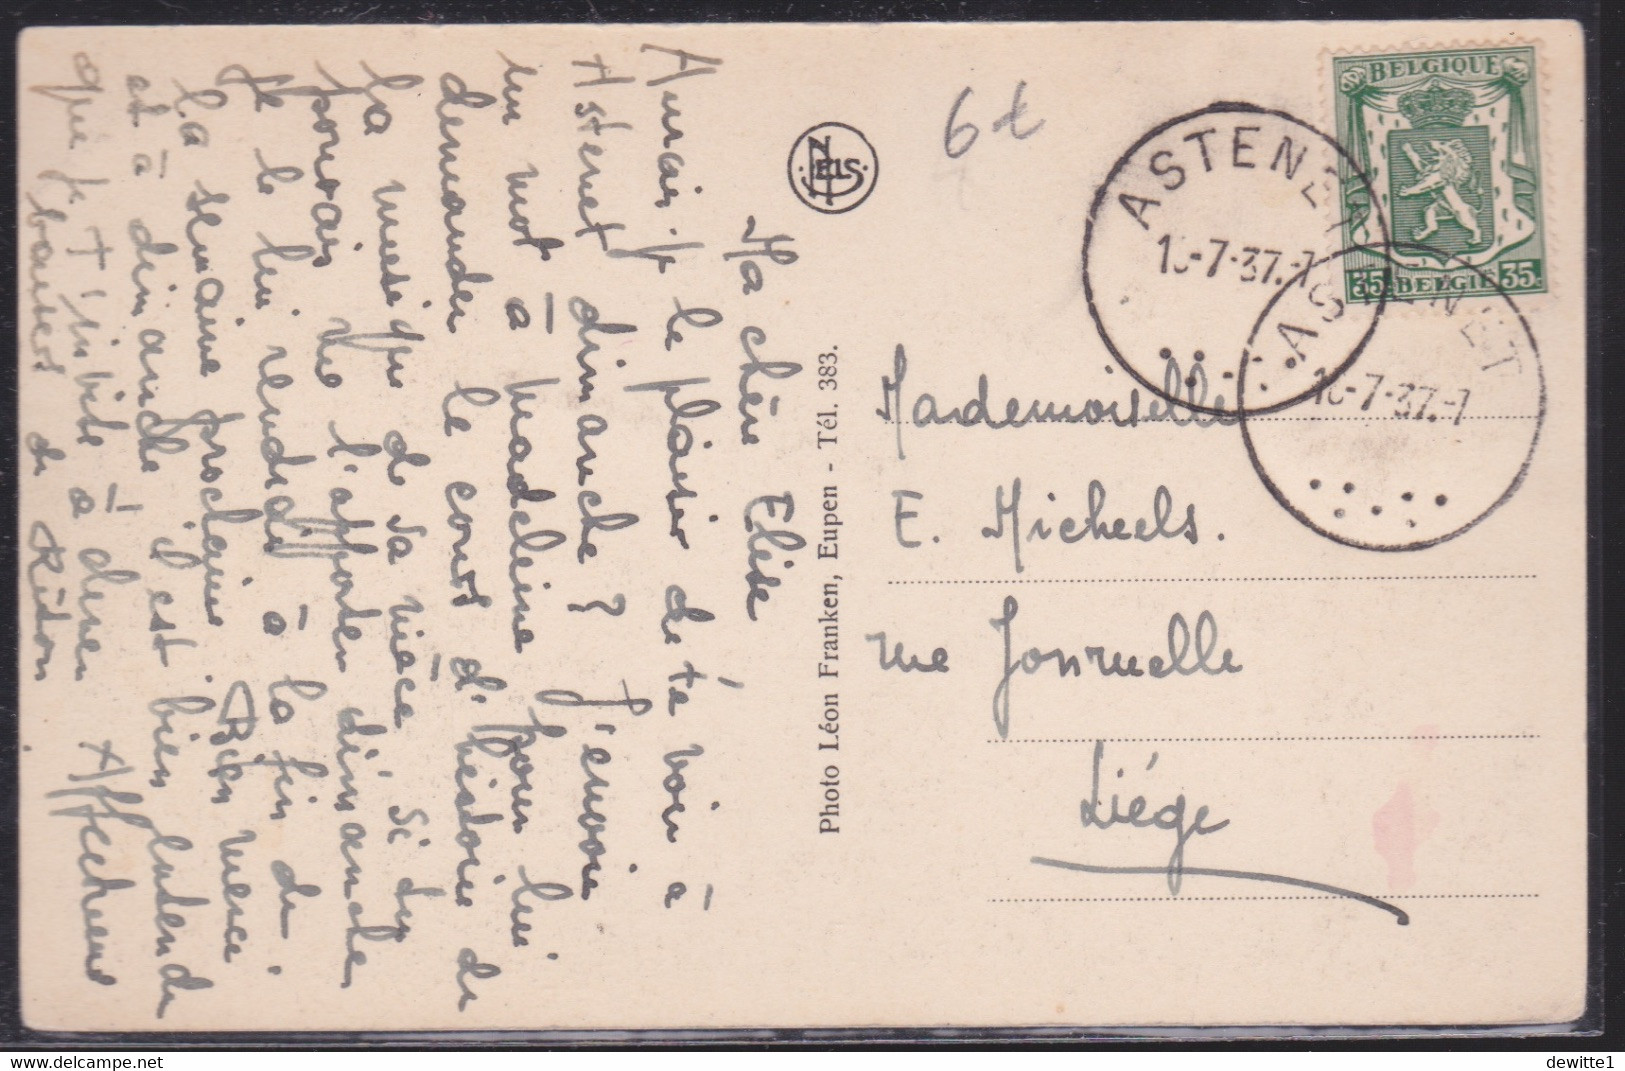 Ma chère Elise
Aurais-je le plaisir de te voir à
Astenet dimanche? J'envoie
un mot à Madeleine pour lui
demander le cours d'histoire de
la musique de sa nièce. Si tu
pouvais me l'apporter dimanche
je le lui rendrais à la fin de
la semaine prochaine. Bien merci
et à dimanche, il est bien entendu
que je t'invite à dîner. Affectueux
baisers de Riton
NELS
Photo Léon Franken, Eupen - Tél. 383.
6 t
BELGIQUE
35c BELGIË 35c
ASTENET
-7-37.-7
ASTENET
-7-37.-7
Mademoiselle
E. Micheels.
rue Jonruelle
Liége
delcampe.net
dewitte1